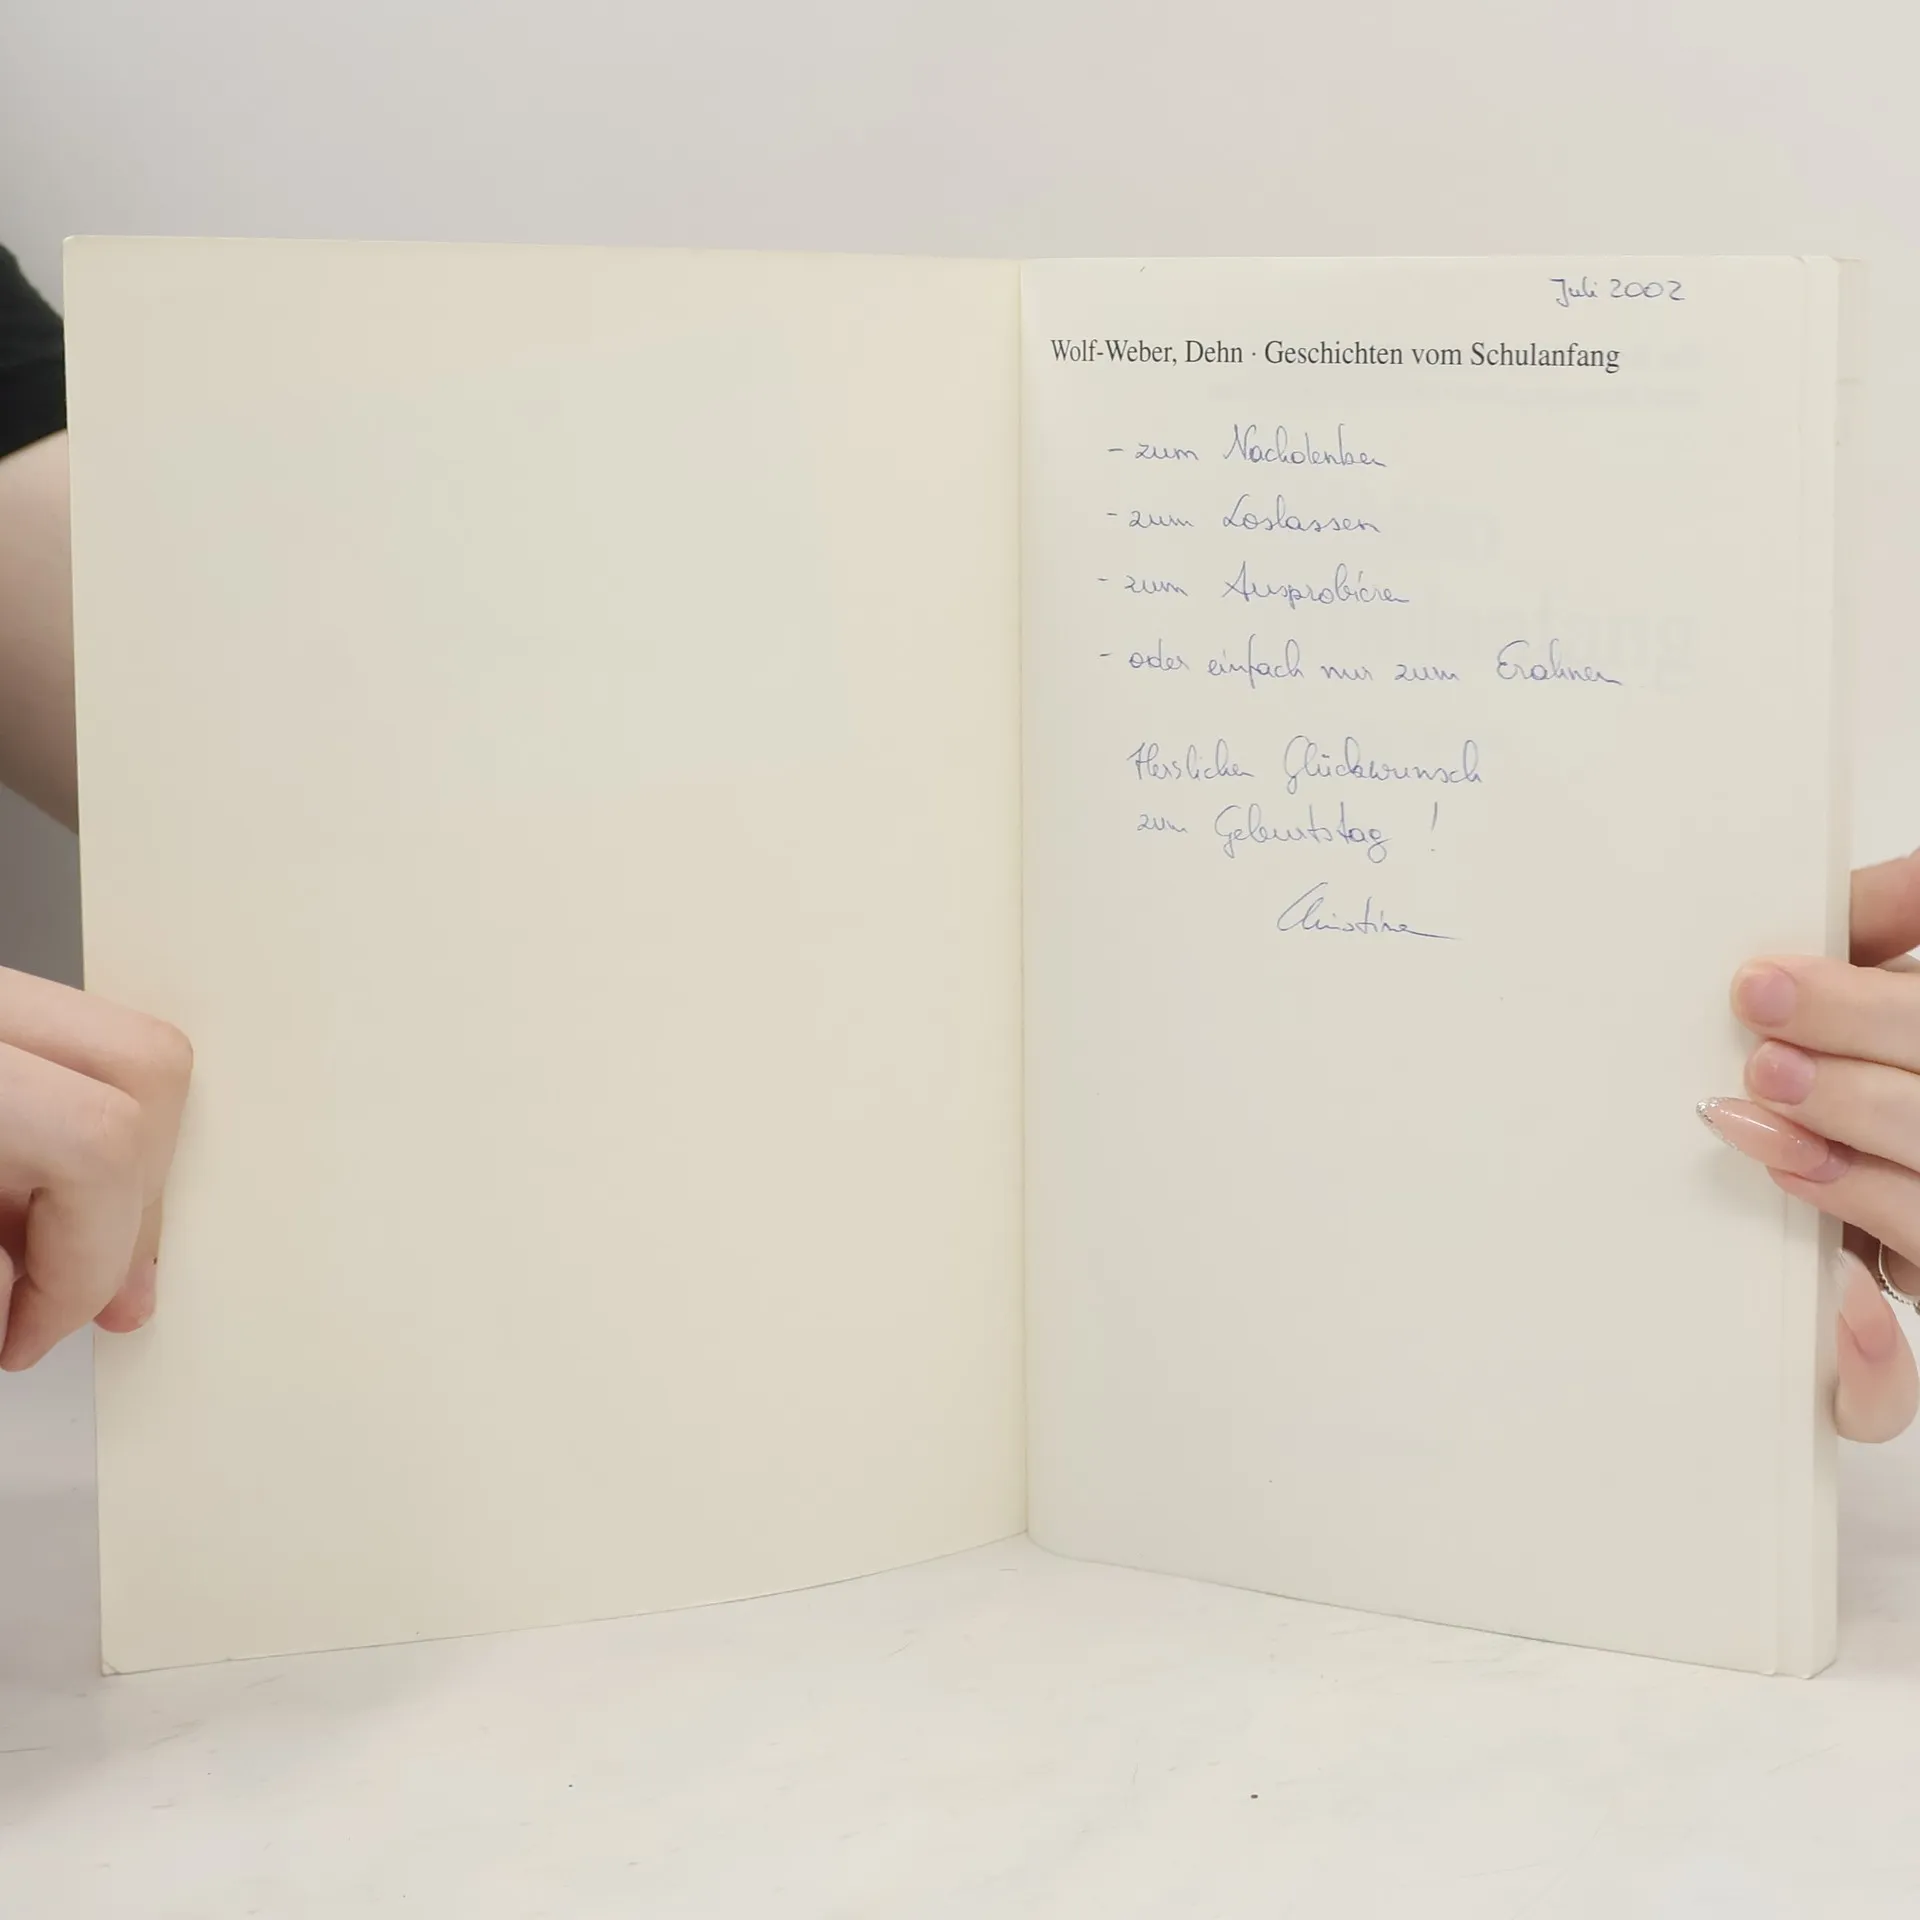 Juli 2002
Wolf-Weber, Dehn · Geschichten vom Schulanfang
- zum Nachdenken
- zum Loslassen
- zum Ausprobieren
- oder einfach nur zum Erahnen
Herzlichen Glückwunsch
zum Geburtstag !
Christina